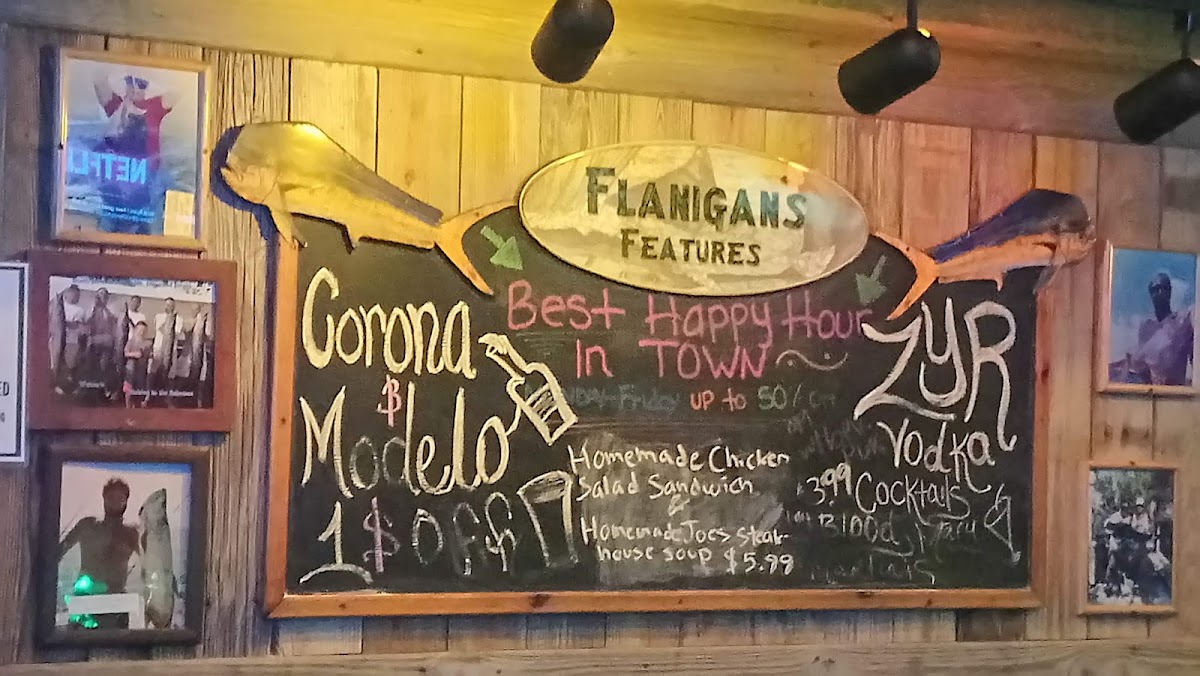 FLANIGANS
FEATURES
Best Happy Hour
In TOWN
Friday UP to 50%
Corona
&
Modelo
1 $ OFF
Homemade Chicken
Salad Sandwich
&
Homemade Joes Steak-
house soup $5.99
ZYR
Vodka
3.99 Cocktails
Blood
NETFLI